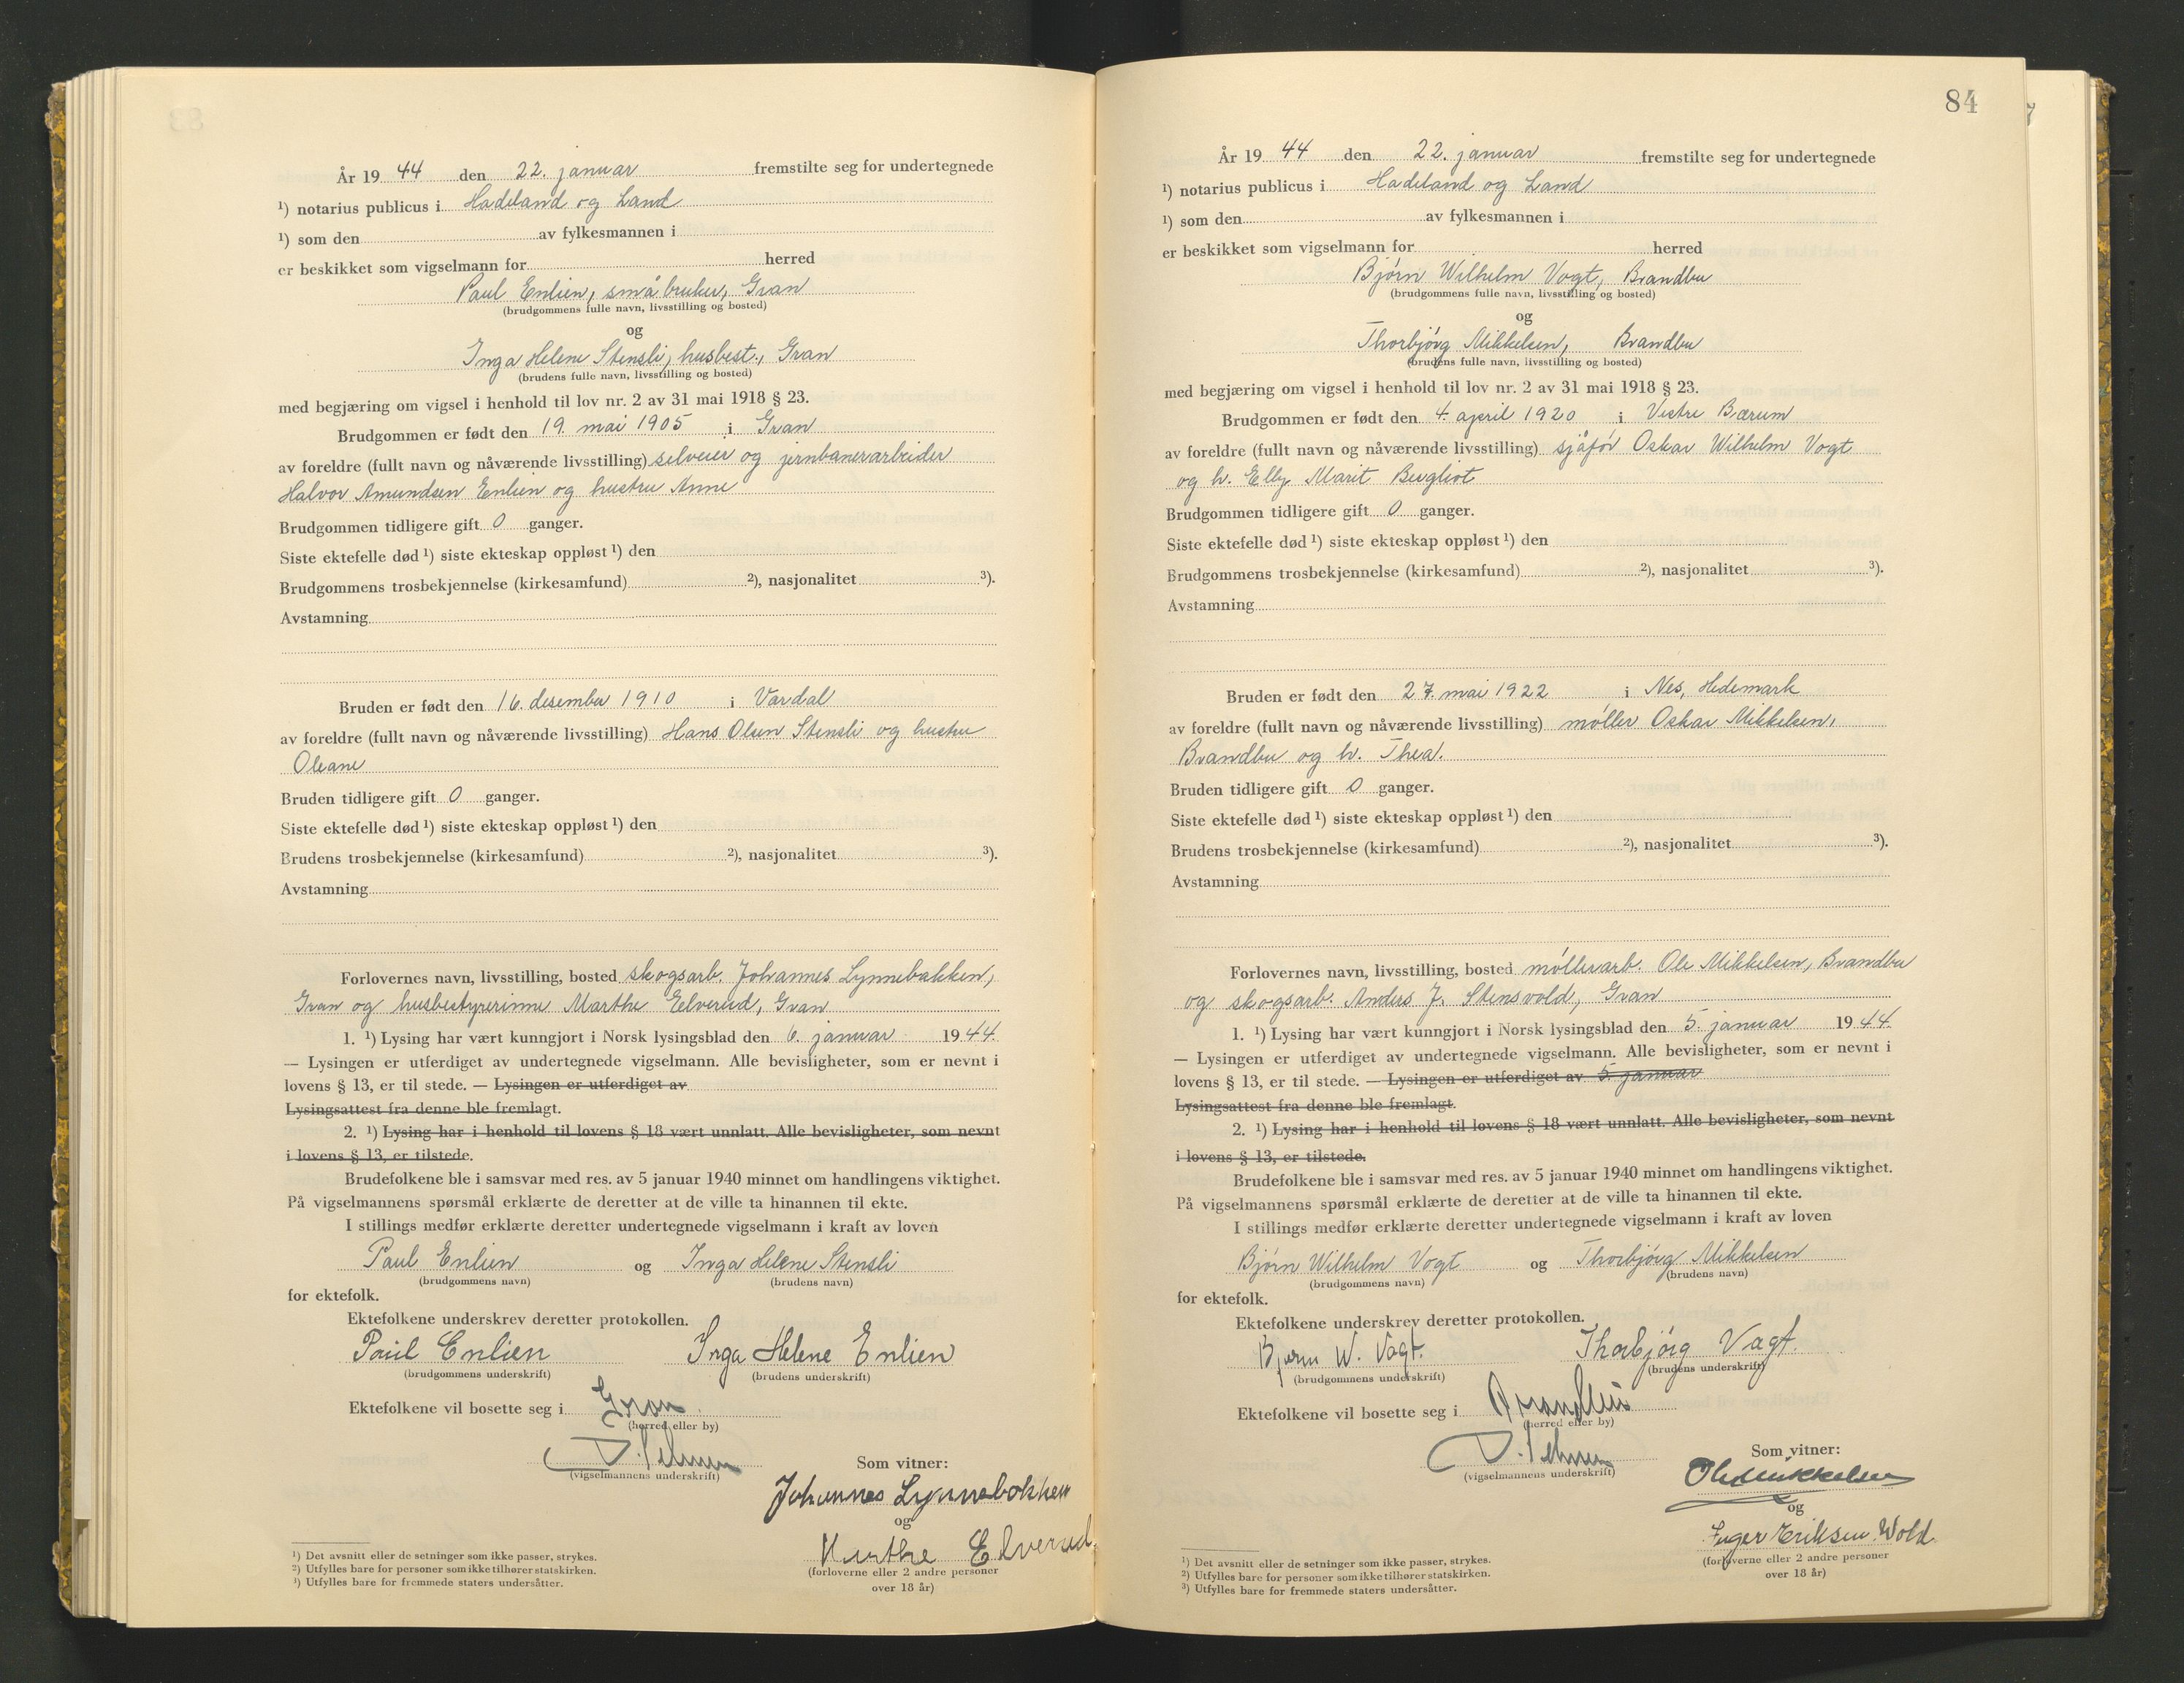 År 19 44 den 22. januar fremstilte seg for undertegnede
¹) notarius publicus i Hadeland og Land
¹) som den av fylkesmannen i
er beskikket som vigselmann for herred
Paul Enlien, småbruker, Gran
(brudgommens fulle navn, livsstilling og bosted)
og
Inga Helene Stensli, husbest., Gran
(brudens fulle navn, livsstilling og bosted)
med begjæring om vigsel i henhold til lov nr. 2 av 31 mai 1918 § 23.
Brudgommen er født den 19. mai 1905 i Gran
av foreldre (fullt navn og nåværende livsstilling) selveier og jernbanerarbeider
Halvor Amundsen Enlien og hustru Anne
Brudgommen tidligere gift 0 ganger.
Siste ektefelle død ¹) siste ekteskap oppløst ¹) den
Brudgommens trosbekjennelse (kirkesamfund) ²), nasjonalitet ³).
Avstamning
Bruden er født den 16. desember 1910 i Vardal
av foreldre (fullt navn og nåværende livsstilling) Hans Olsen Stensli og hustru
Oleane
Bruden tidligere gift 0 ganger.
Siste ektefelle død ¹) siste ekteskap oppløst ¹) den
Brudens trosbekjennelse (kirkesamfund) ²), nasjonalitet ³).
Avstamning
Forlovernes navn, livsstilling, bosted skogsarb. Johannes Lynnebakken,
Gran og husbestyrerinne Marthe Eelverud, Gran
1. ¹) Lysing har vært kunngjort i Norsk lysingsblad den 6. januar 1944.
— Lysingen er utferdiget av undertegnede vigselmann. Alle bevisligheter, som er nevnt i
lovens § 13, er til stede. — Lysingen er utferdiget av
Lysingsattest fra denne ble fremlagt.
2. ¹) Lysing har i henhold til lovens § 18 vært unnlatt. Alle bevisligheter, som nevnt
i lovens § 13, er tilstede.
Brudefolkene ble i samsvar med res. av 5 januar 1940 minnet om handlingens viktighet.
På vigselmannens spørsmål erklærte de deretter at de ville ta hinannen til ekte.
I stillings medfør erklærte deretter undertegnede vigselmann i kraft av loven
Paul Enlien og Inga Helene Stensli
(brudgommens navn) (brudens navn)
for ektefolk.
Ektefolkene underskrev deretter protokollen.
Paul Enlien Inga Helene Enlien
(brudgommens underskrift) (brudens underskrift)
Ektefolkene vil bosette seg i Gran.
(herred eller by)
(vigselmannens underskrift) Som vitner:
Johannes Lynnebakken
og
Marthe Elverud.
(forloverne eller 2 andre personer
over 18 år)
¹) Det avsnitt eller de setninger som ikke passer, strykes.
²) Utfylles bare for personer som ikke tilhører statskirken.
³) Utfylles bare for fremmede staters undersåtter.
84
År 19 44 den 22. januar fremstilte seg for undertegnede
¹) notarius publicus i Hadeland og Land
¹) som den av fylkesmannen i
er beskikket som vigselmann for herred
Bjørn Wilhelm Vogt, Brandbu
(brudgommens fulle navn, livsstilling og bosted)
og
Thorbjørg Mikkelsen, Brandbu
(brudens fulle navn, livsstilling og bosted)
med begjæring om vigsel i henhold til lov nr. 2 av 31 mai 1918 § 23.
Brudgommen er født den 4. april 1920 i Vestre Bærum
av foreldre (fullt navn og nåværende livsstilling) sjåfør Oskar Wilhelm Vogt
og h. Elly Marit Bergliot
Brudgommen tidligere gift 0 ganger.
Siste ektefelle død ¹) siste ekteskap oppløst ¹) den
Brudgommens trosbekjennelse (kirkesamfund) ²), nasjonalitet ³).
Avstamning
Bruden er født den 27. mai 1922 i Nes, Hedemark
av foreldre (fullt navn og nåværende livsstilling) møller Oskar Mikkelsen,
Brandbu og h. Thea.
Bruden tidligere gift 0 ganger.
Siste ektefelle død ¹) siste ekteskap oppløst ¹) den
Brudens trosbekjennelse (kirkesamfund) ²), nasjonalitet ³).
Avstamning
Forlovernes navn, livsstilling, bosted møllerarb. Ole Mikkelsen, Brandbu
og skogsarb. Anders J. Stensvold, Gran
1. ¹) Lysing har vært kunngjort i Norsk lysingsblad den 5. januar 1944.
— Lysingen er utferdiget av undertegnede vigselmann. Alle bevisligheter, som er nevnt i
lovens § 13, er til stede. — Lysingen er utferdiget av 5. januar
Lysingsattest fra denne ble fremlagt.
2. ¹) Lysing har i henhold til lovens § 18 vært unnlatt. Alle bevisligheter, som nevnt
i lovens § 13, er tilstede.
Brudefolkene ble i samsvar med res. av 5 januar 1940 minnet om handlingens viktighet.
På vigselmannens spørsmål erklærte de deretter at de ville ta hinannen til ekte.
I stillings medfør erklærte deretter undertegnede vigselmann i kraft av loven
Bjørn Wilhelm Vogt og Thorbjørg Mikkelsen
(brudgommens navn) (brudens navn)
for ektefolk.
Ektefolkene underskrev deretter protokollen.
Bjørn W. Vogt. Thorbjørg Vogt.
(brudgommens underskrift) (brudens underskrift)
Ektefolkene vil bosette seg i Brandbu
(herred eller by)
(vigselmannens underskrift) Som vitner:
Ole Mikkelsen
og
Inger Eriksen Wold.
(forloverne eller 2 andre personer
over 18 år)
¹) Det avsnitt eller de setninger som ikke passer, strykes.
²) Utfylles bare for personer som ikke tilhører statskirken.
³) Utfylles bare for fremmede staters undersåtter.